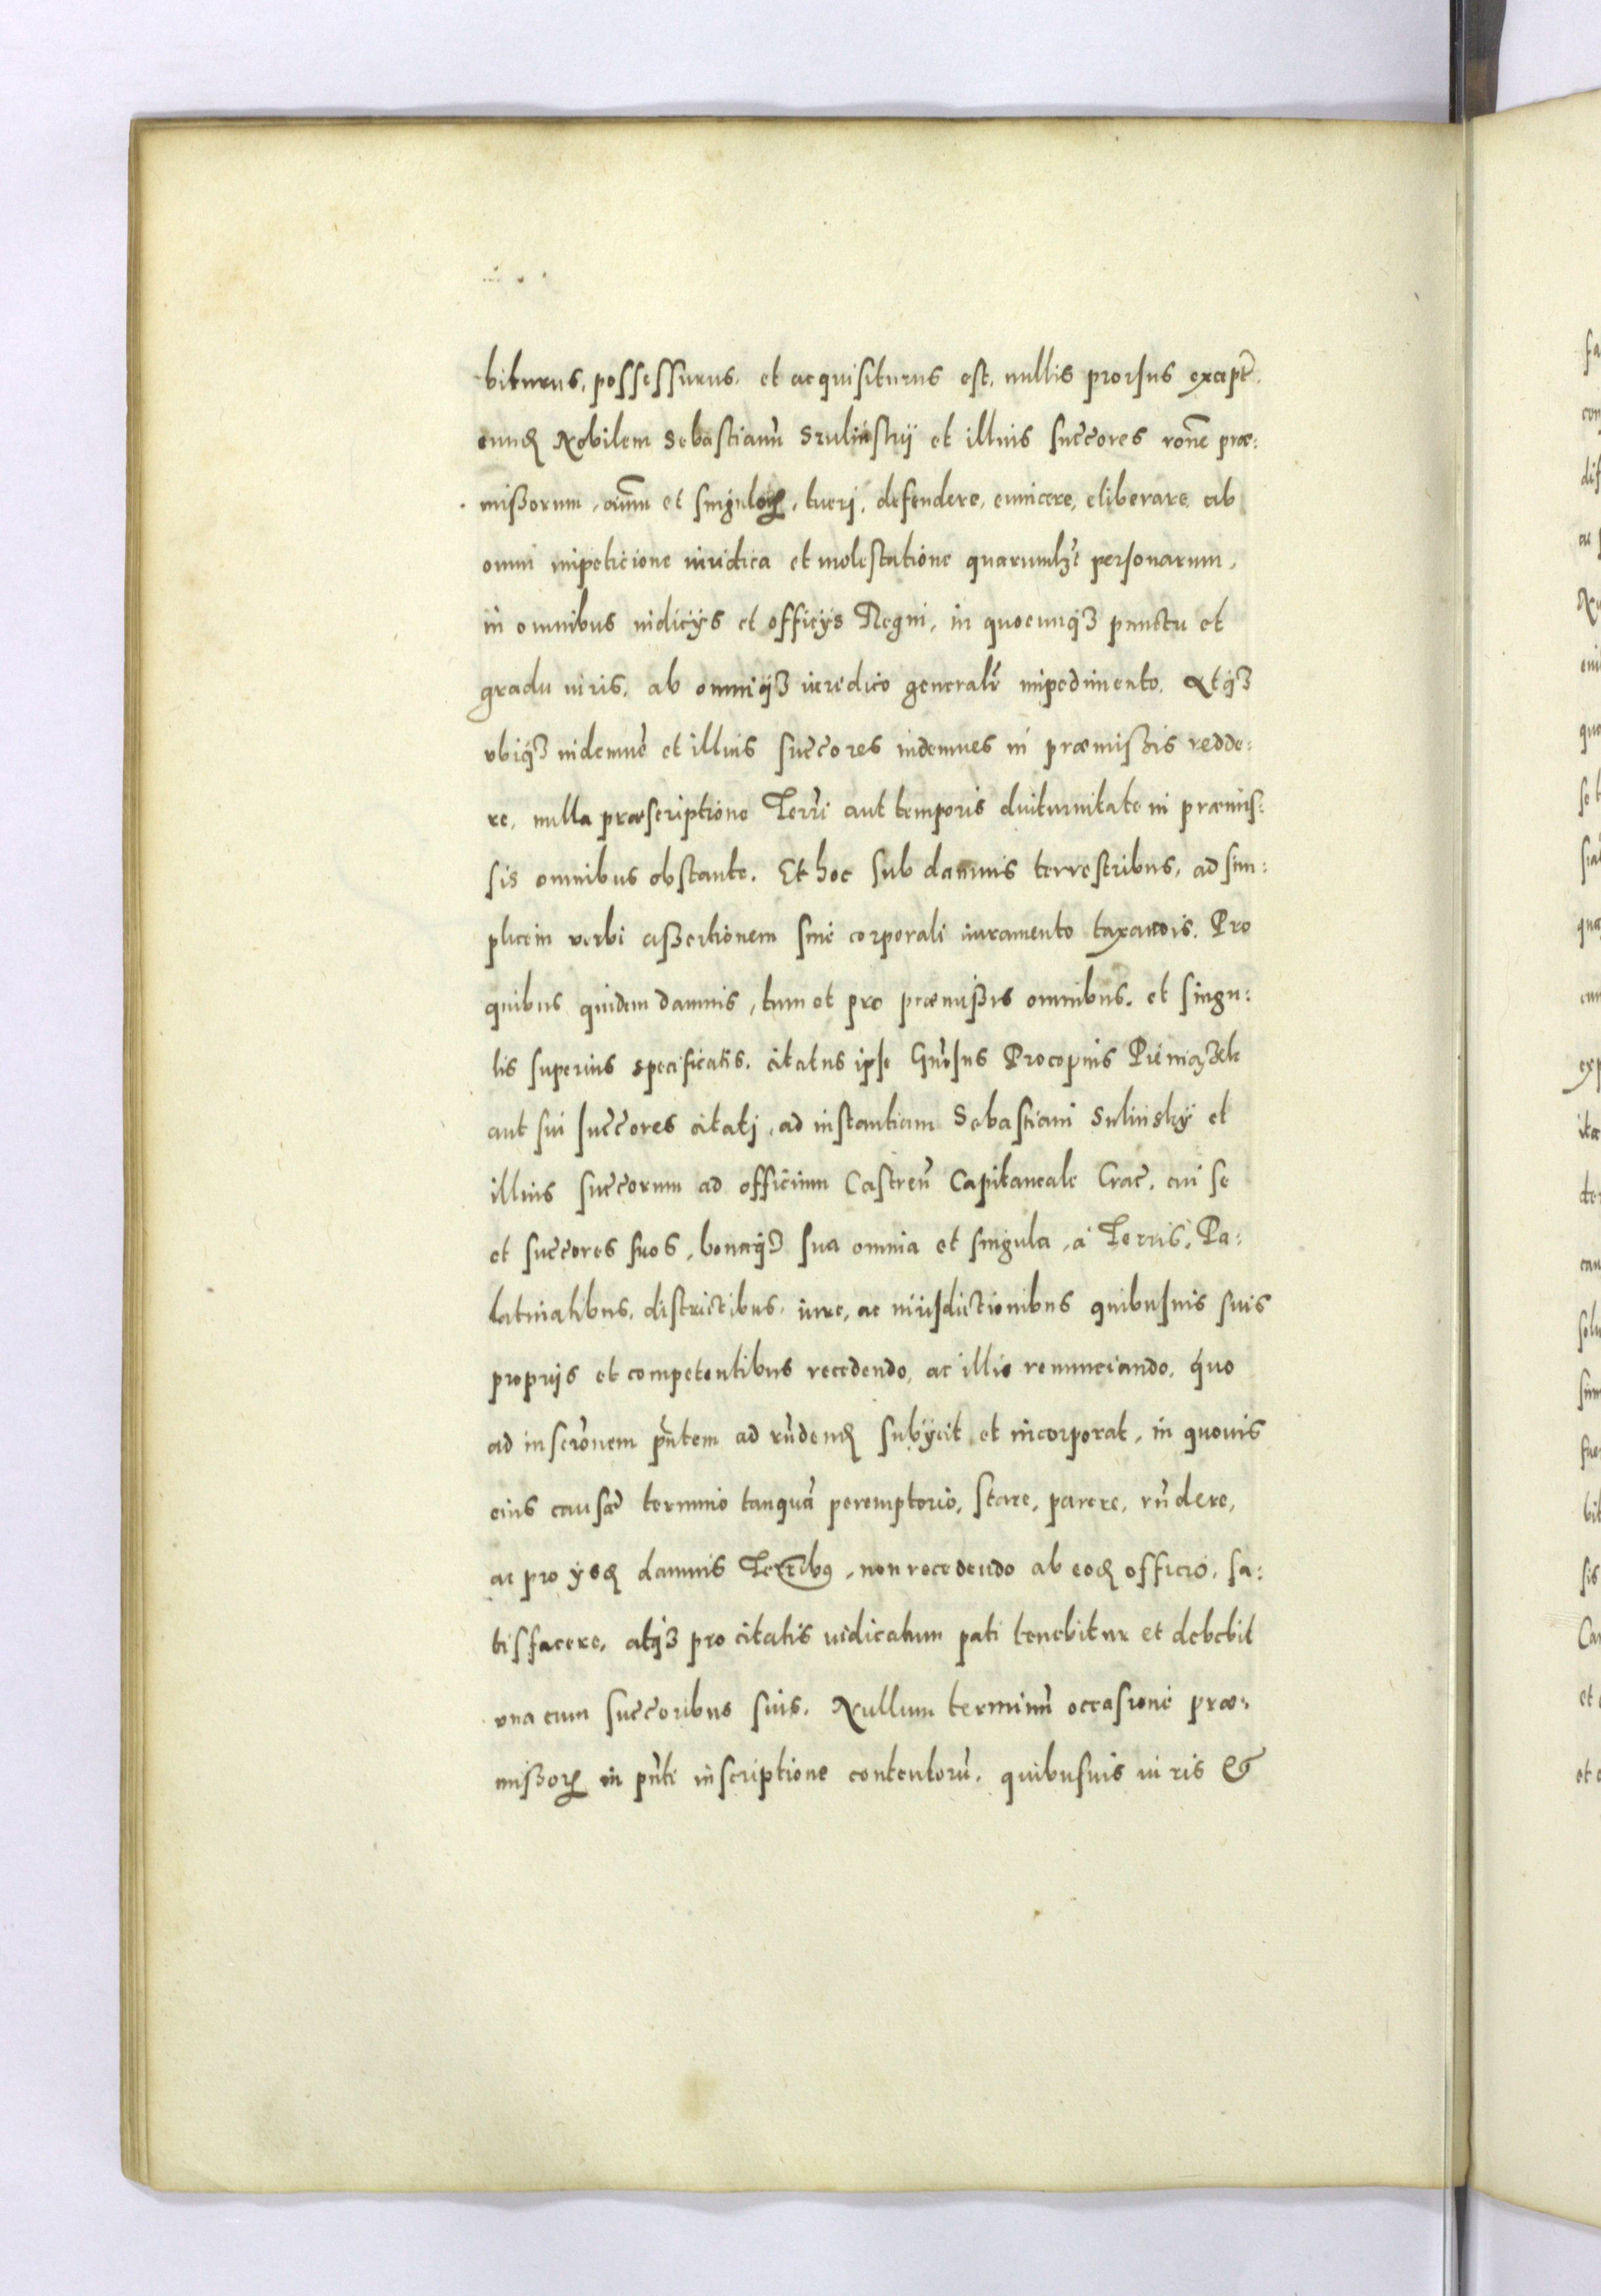 biturus, possessurus, et acquisiturus est, nullis prorsus except̃.
eunđ Nobilem Sebastianũ Szulinskij et illius succ̃ores rone præ:
missorum, oĩum et singuloꝝ, tueri, defendere, euincere, eliberare ab
omni impeticione iuridica et molestatione quarumlꝫt personarum,
in omnibus iudicijs et officijs Regni, in quocunqꝫ punctu et
gradu iuris, ab omniqꝫ iuridico generalr̃ impedimento. Atqꝫ
vbiqꝫ indemnẽ et illius succ̃ores indemnes in præmissis redde:
re, nulla præscriptione Terrĩ aut temporis diuturnitate in præmis:
sis omnibus obstante. Et hoc sub damnis terrestribus, ad sim:
plicem verbi assertionem sine corporali iuramento taxandis. Pro
quibus quidem damnis, tum et pro præmissis omnibus, et singu:
lis superius specificatis, citatus ipse Gñosus Procopius Pieniązek
aut sui succ̃ores citati, ad instantiam Sebastiani Sulinsky et
illius succ̃orum ad officium Castreñ Capitaneale Crac̃. cui se
et succ̃ores suos, bonaqꝫ sua omnia et singula, à Terris, Pa:
latinatibus, districtibus, iure, ac iurisdictionibus quibusuis suis
proprijs et competentibus recedendo, ac illis renunciando, quo
ad inscr̃onem pñtem ad rñdenđ subijcit et incorporat, in quouis
eius causæ termino tanquã peremptorio, stare, parere, rñdere,
ac pro ijsđ damnis Terr̃ibꝰ, non recedendo ab eođ officio, sa:
tisfacere, atqꝫ pro citatis iudicatum pati tenebitur et debebit
vna cum succ̃oribus suis. Nullum terminũ occasione præ:
missoꝝ in pñti inscriptione contentorũ, quibusuis iuris &